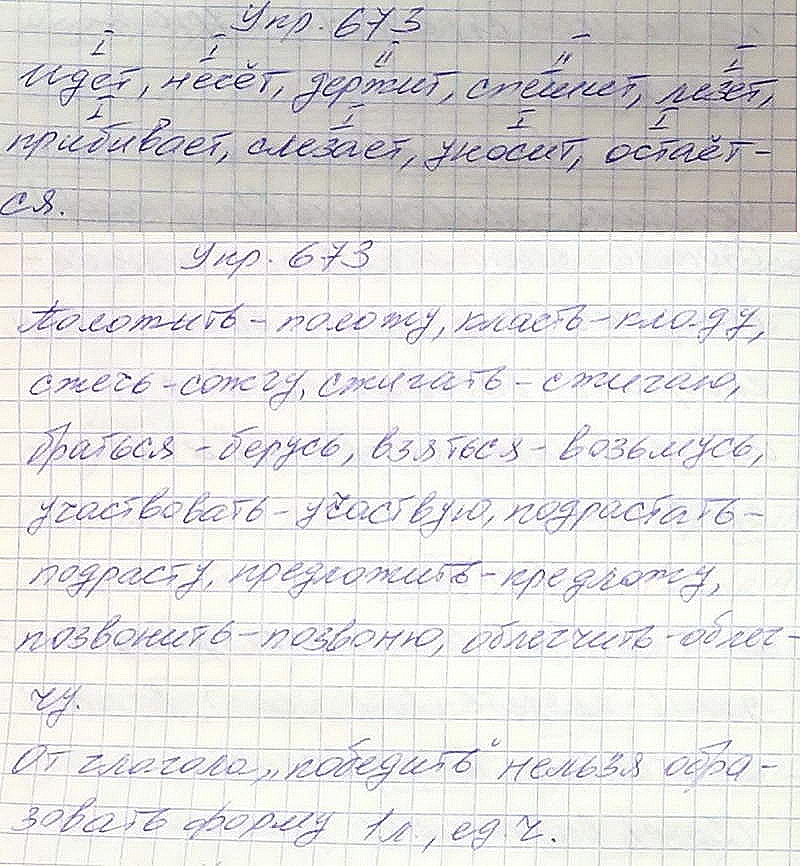 Упр. 673
I I II II I
Идёт, несёт, держит, спешит, лезет,
I I I I
прибивает, слезает, уносит, остаёт-
ся.
Упр. 673
Положить - положу, класть - кладу,
сжечь - сожгу, сжигать - сжигаю,
браться - берусь, взяться - возьмусь,
участвовать - участвую, подрастать -
подрасту, предложить - предложу,
позвонить - позвоню, облегчить - облег-
чу.
От глагола „победить" нельзя обра-
зовать форму 1 л., ед. ч.